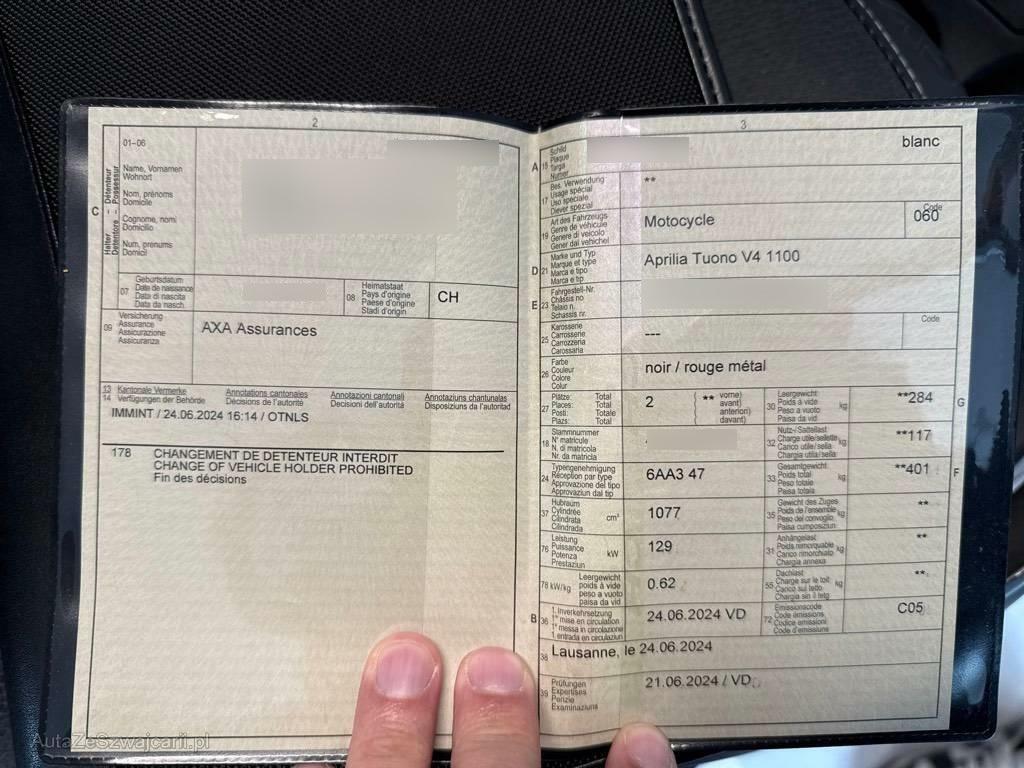 2
01–06
Name, Vornamen
Wohnort
Nom, prénoms
Domicile
Cognome, nomi
Domicilio
Num, prenums
Domicil
C
Halter – Détenteur
Detentore – Possessur
07
Geburtsdatum
Date de naissance
Data di nascita
Data da nasch.
08
Heimatstaat
Pays d'origine
Paese d'origine
Stadi d'origin
CH
09
Versicherung
Assurance
Assicurazione
Assicuranza
AXA Assurances
13
14
Kantonale Vermerke
Verfügungen der Behörde
Annotations cantonales
Décisions de l'autorité
Annotazioni cantonali
Decisioni dell'autorità
Annotaziuns chantunalas
Disposiziuns da l'autoritad
IMMINT / 24.06.2024 16:14 / OTNLS
178 CHANGEMENT DE DETENTEUR INTERDIT
CHANGE OF VEHICLE HOLDER PROHIBITED
Fin des décisions
3
A
15
Schild
Plaque
Targa
Numer
blanc
17
Bes. Verwendung
Usage spécial
Uso speciale
Diever spezial
**
19
Art des Fahrzeugs
Genre de véhicule
Genere di veicolo
Gener dal vehichel
Motocycle
Code
060
D
21
Marke und Typ
Marque et type
Marca e tipo
Marca e tip
Aprilia Tuono V4 1100
E
23
Fahrgestell-Nr.
Châssis no
Telaio n.
Schassis nr.
25
Karosserie
Carrosserie
Carrozzeria
Carossaria
---
Code
26
Farbe
Couleur
Colore
Colur
noir / rouge métal
27
Plätze: Total
Places: Total
Posti: Totale
Plazs: Total
2
( ** vorne)
avant)
anteriori)
davant)
30
Leergewicht
Poids à vide
Peso a vuoto
Paisa da vid
kg
**284
G
18
Stammnummer
N° matricule
N. di matricola
Nr. da matricla
32
Nutz-/Sattellast
Charge utile/sellette
Carico utile/sella
Chargia utila/sella
kg
**117
24
Typengenehmigung
Réception par type
Approvazione del tipo
Approvaziun dal tip
6AA3 47
33
Gesamtgewicht
Poids total
Peso totale
Paisa totala
kg
**401
F
37
Hubraum
Cylindrée
Cilindrata
Cilindrada
cm³
1077
35
Gewicht des Zuges
Poids de l'ensemble
Peso del convoglio
Paisa cumposiziun
kg
**
76
Leistung
Puissance
Potenza
Prestaziun
kW
129
31
Anhängelast
Poids remorquable
Carico rimorchiato
Chargia annexa
kg
**
78 kW/kg
Leergewicht
poids à vide
peso a vuoto
paisa da vid
0.62
55
Dachlast
Charge sur le toit
Carico sul tetto
Chargia sin il tetg
kg
**
B
36
1. Inverkehrsetzung
1re mise en circulation
1a messa in circolazione
1. entrada en circulaziun
24.06.2024 VD
72
Emissionscode
Code émissions
Codice emissioni
Code d'emissiuns
C05
38
Lausanne, le 24.06.2024
39
Prüfungen
Expertises
Perizie
Examinaziuns
21.06.2024 / VD
AutaZeSzwajcarii.pl